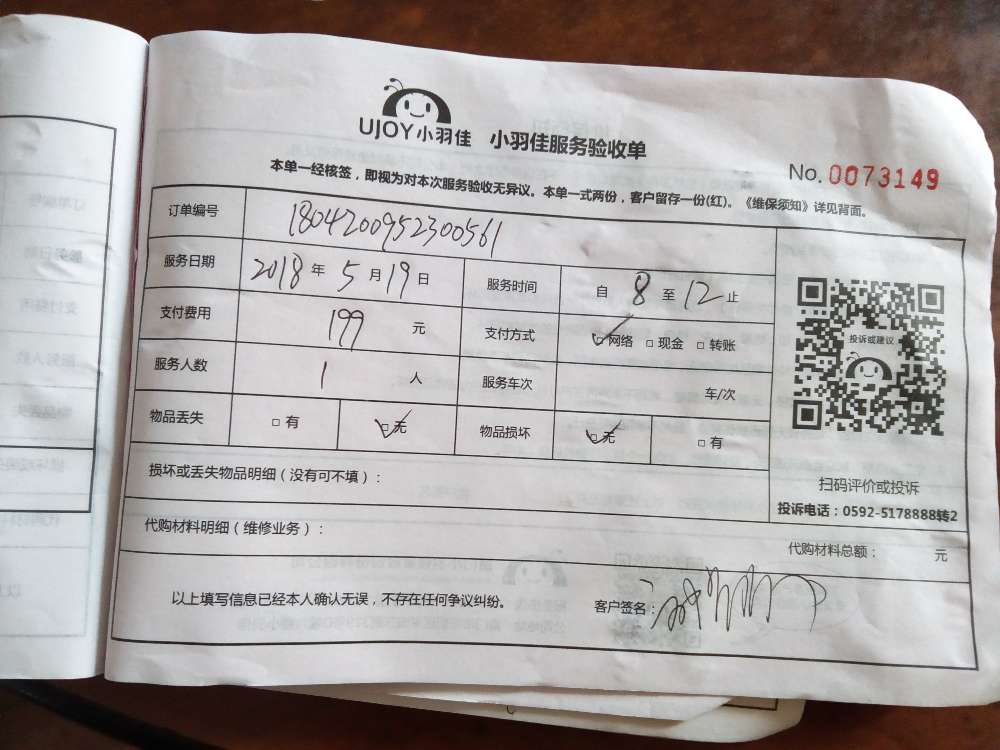 UJOY小羽佳 小羽佳服务验收单
No. 0073149
本单一经核签，即视为对本次服务验收无异议。本单一式两份，客户留存一份(红)。《维保须知》详见背面。
订单编号 1804200952300561
服务日期 2018年5月19日 服务时间 自8至12止
支付费用 199元 支付方式 ☑网络 □现金 □转账
投诉或建议
服务人数 1人 服务车次 车/次
物品丢失 □有 ☑无 物品损坏 ☑无 □有
损坏或丢失物品明细（没有可不填）：
扫码评价或投诉
投诉电话：0592-5178888转2
代购材料明细（维修业务）：
代购材料总额： 元
以上填写信息已经本人确认无误，不存在任何争议纠纷。 客户签名：